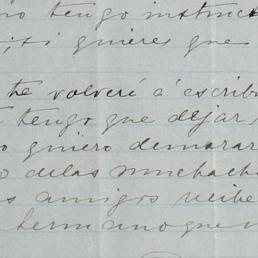 no tengo instruc
si quieres que
te volveré á escribi
tengo que dejar,
quiero demorar
delas muchacha
amigos recibe
hermano que